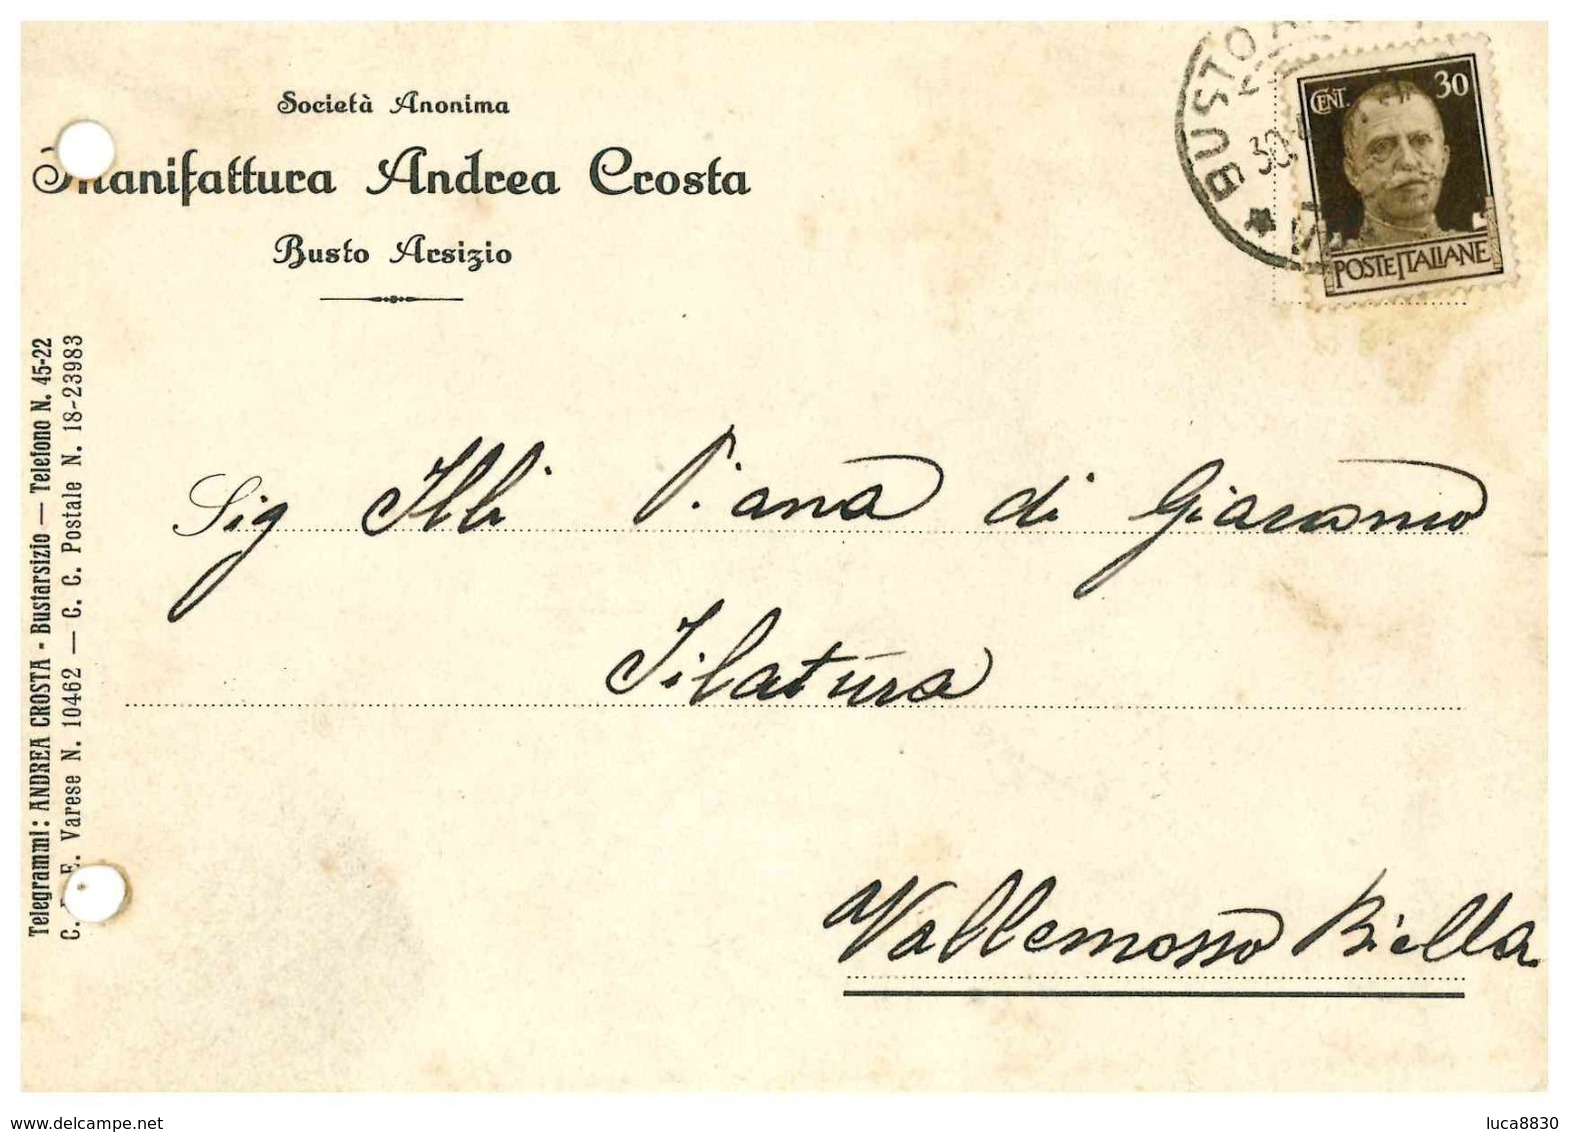 Società Anonima
Manifattura Andrea Crosta
Busto Arsizio
BUSTO
30
CENT. 30
POSTE ITALIANE
Telegrammi: ANDREA CROSTA - Bustarsizio — Telefono N. 45-22
C. E. Varese N. 10462 — C. C. Postale N. 18-23983
Sig Flli Piana di Giacomo
Filatura
Vallemosso Biella
www.delcampe.net
luca8830